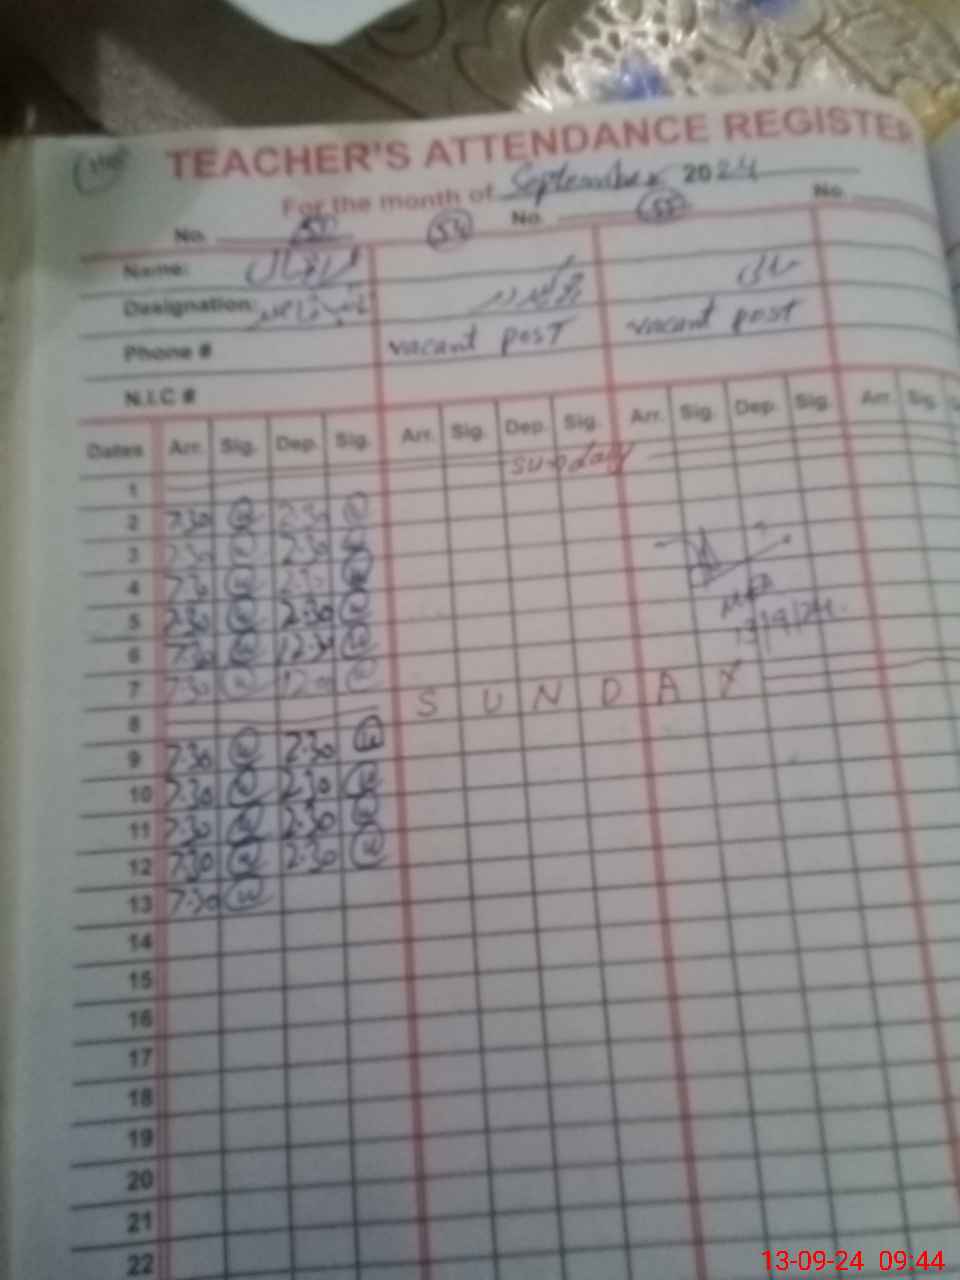 TEACHER'S ATTENDANCE REGISTER
For the month of September 2024
No. No. No.
54 55
Name: مالی
Designation: چوکیدار
vacant post vacant post
Phone #
N.I.C #
Dates Arr. Sig. Dep. Sig. Arr. Sig. Dep. Sig. Arr. Sig. Dep. Sig. Arr. Sig.
1 Sunday
2 7:30 2:30
3 7:30 2:30
4 7:30 2:30
5 7:30 2:30
6 7:30 12:30
7 7:30 12:00
8 SUNDAY
9 7:30 2:30
10 7:30 2:30
11 7:30 2:30
12 7:30 2:30
13 7:30
13/9/24
14
15
16
17
18
19
20
21
22
13-09-24 09:44